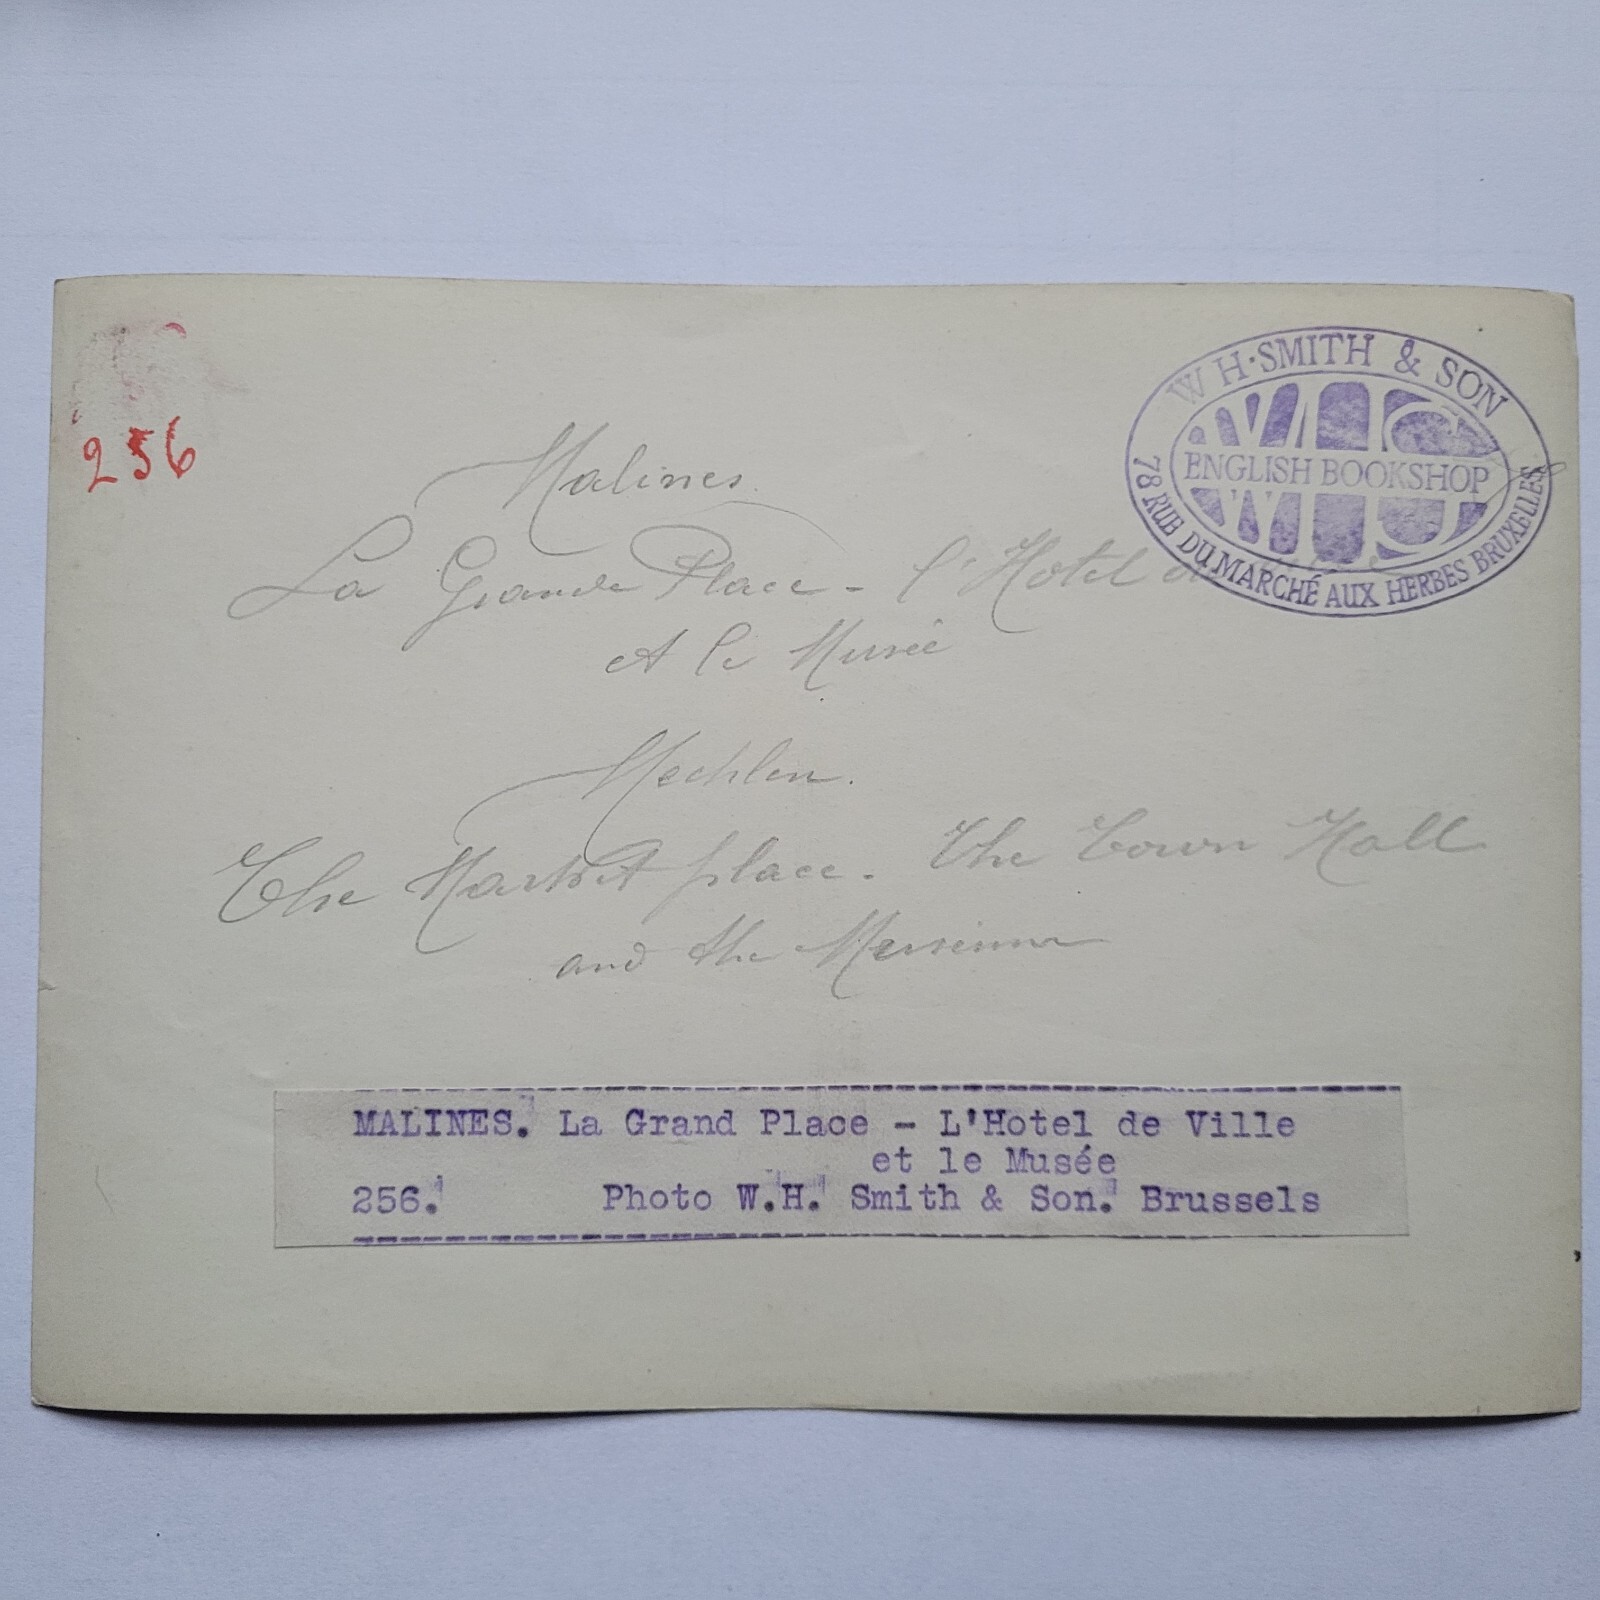 256
W H·SMITH & SON
WHS
ENGLISH BOOKSHOP
78 RUE DU MARCHÉ AUX HERBES BRUXELLES
Malines.
La Grande Place - l'Hotel de
et le Musée
Mechlen.
The Market place. The Town Hall
and the
MALINES. La Grand Place - L'Hotel de Ville
et le Musée
256. Photo W.H. Smith & Son. Brussels